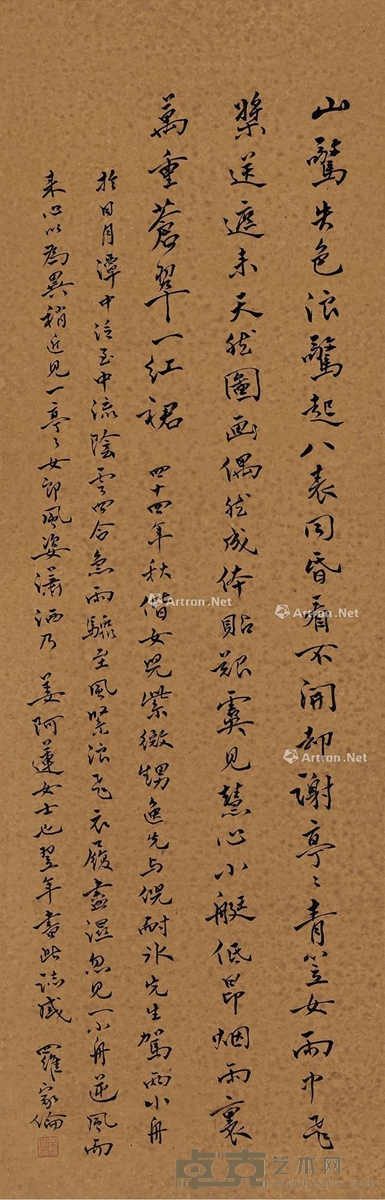 山驚失色浪驚起八表同昏看不開却謝亭々青笠女雨中飛
槳送遮来天然圖画偶然成体貼艱虞見慧心小艇低昂烟雨裏
萬重蒼翠一红裙 四十四年秋偕女兒紫薇甥逸先与倪耐冰先生駕两小舟
於日月潭中泛至中流陰雲四合急雨驟至風緊浪飛衣履盡濕忽見一小舟逆風而
来心以為異稍近見一亭々女郎風姿瀟洒乃 姜阿蓮女士也翌年書此誌感 羅家倫
Artron.Net
Artron.Net
Artron.Net
Artron.Net
卓克艺术网